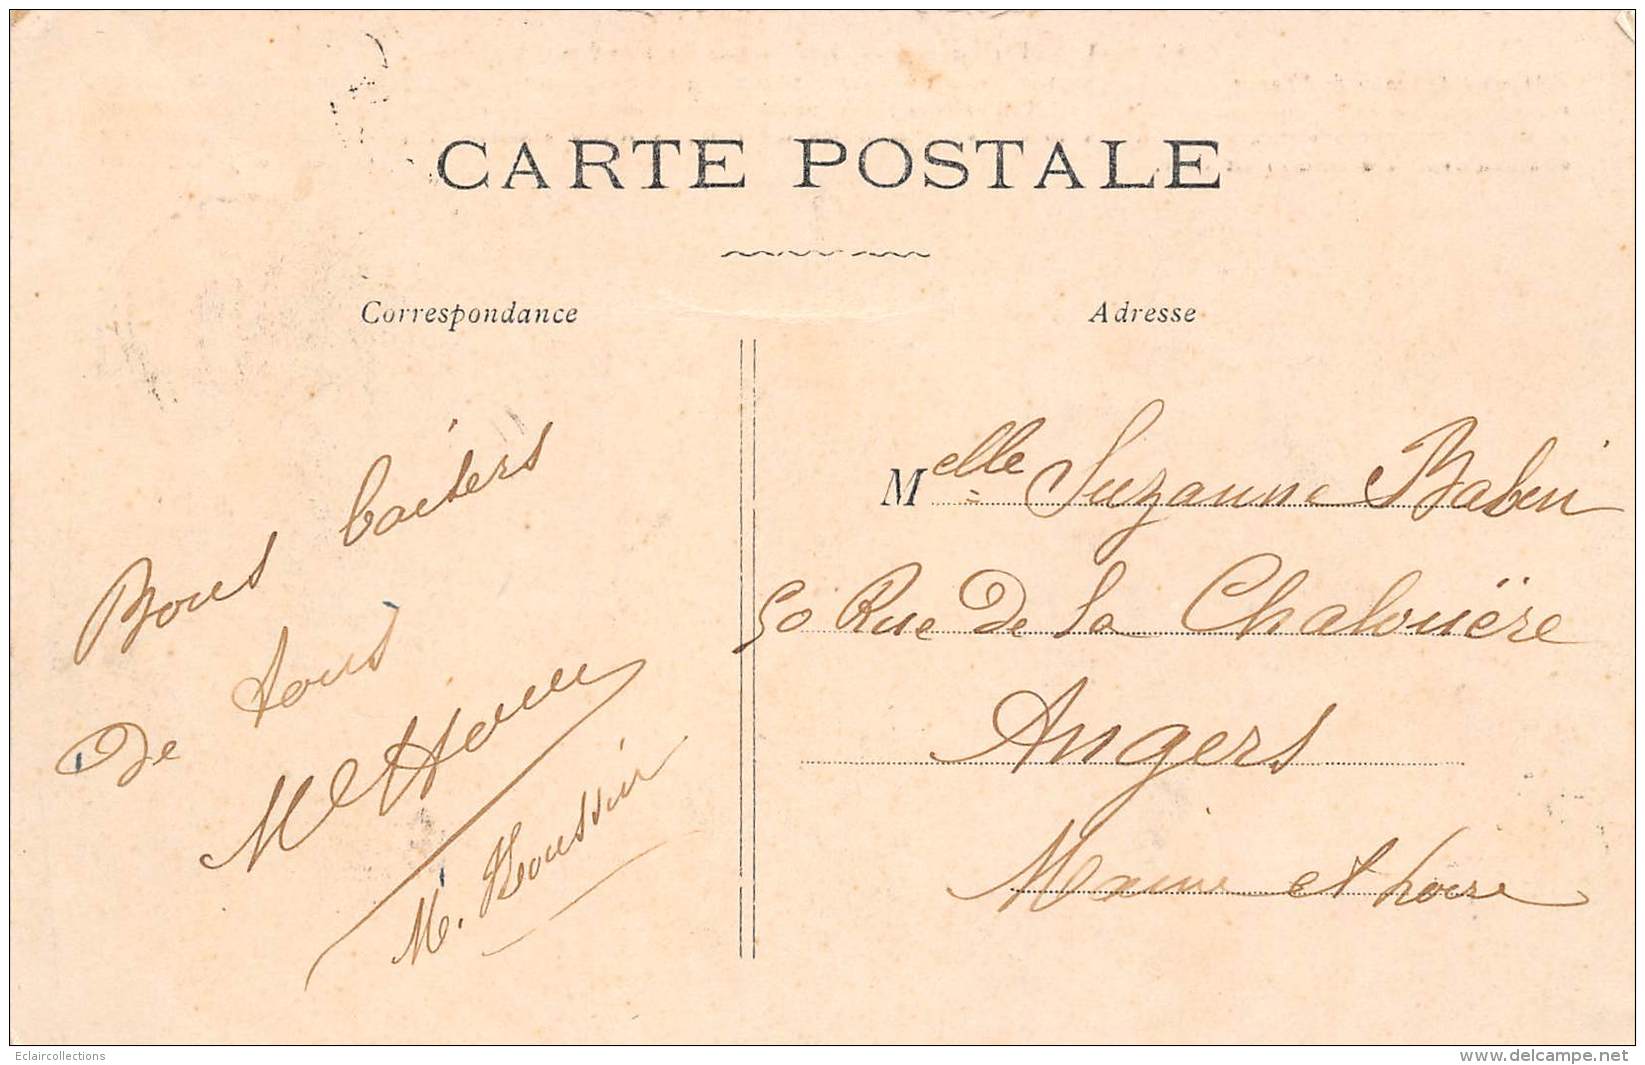 CARTE POSTALE
Correspondance
Adresse
Bons baisers
de tous
M. Houssin
Melle Suzanne Babin
50 Rue De la Chalouëre
Angers
Maine et Loire
Eclaircollections
www.delcampe.net